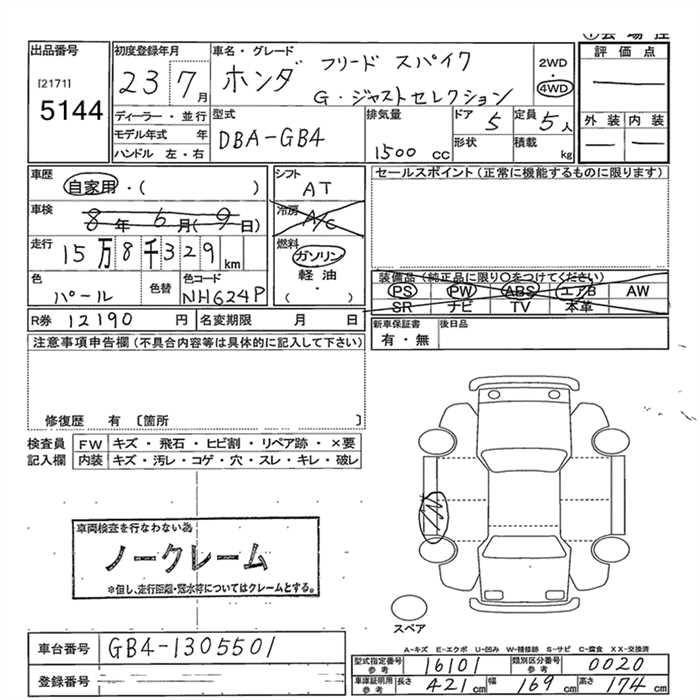 ①会場控
出品番号
[2171]
5144
初度登録年月
23 7月
車名・グレード
ホンダ フリード スパイク
G・ジャストセレクション
2WD
4WD
評価点
外装 内装
ディーラー・並行
モデル年式 年
ハンドル 左・右
型式
DBA-GB4
排気量
1500 cc
ドア 5
定員 5人
形状
積載 kg
車歴
自家用・( )
シフト
AT
セールスポイント(正常に機能するものに限ります)
車検
8年6月(9日)
冷房
A/C
走行
15万8千329km
燃料
ガソリン
軽油
・( )
色
パール
色替
色コード
NH624P
装備品(純正品に限り○をつけてください)
PS PW ABS エアB AW
SR ナビ TV 本革
R券 12190円
名変期限 月 日
新車保証書
有・無
後日品
注意事項申告欄(不具合内容等は具体的に記入して下さい)
修復歴 有 〔箇所 〕
検査員
記入欄
FW キズ・飛石・ヒビ割・リペア跡・×要
内装 キズ・汚レ・コゲ・穴・スレ・キレ・破レ
車両検査を行なわない為
ノークレーム
*但し、走行距離・冠水等についてはクレームとする。
スペア
A-キズ E-エクボ U-凹み W-補修跡 S-サビ C-腐食 XX-交換済
車台番号 GB4-1305501
登録番号
型式指定番号
参考
16101
類別区分番号
参考
0020
車庫証明用
参考
長さ 421cm 幅 169cm 高さ 174cm